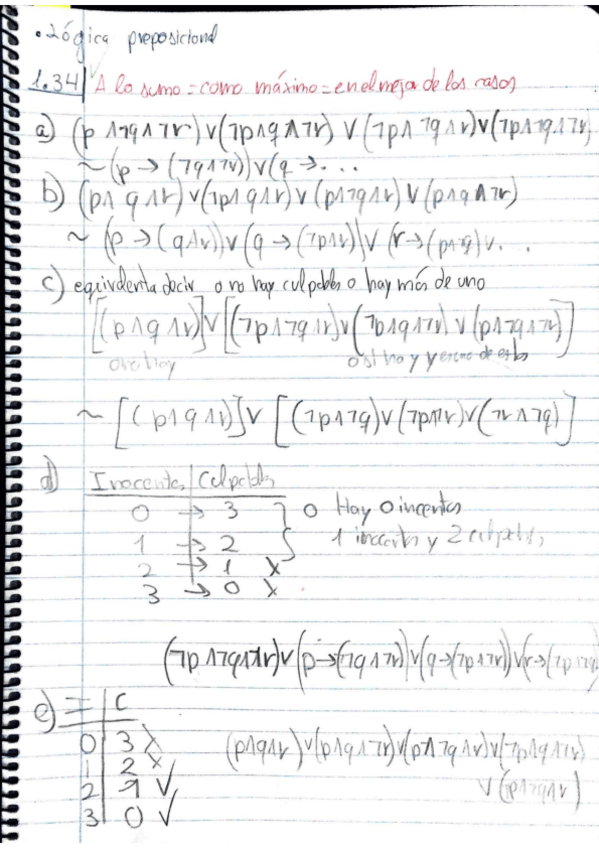 • Lógica preposicional
1.34 A lo sumo = como máximo = en el mejor de los casos
a) (p ∧ ¬q ∧ ¬r) ∨ (¬p ∧ q ∧ ¬r) ∨ (¬p ∧ ¬q ∧ r) ∨ (¬p ∧ ¬q ∧ ¬r)
~ (p → (¬q ∧ ¬r)) ∨ (q → ...
b) (p ∧ q ∧ r) ∨ (¬p ∧ q ∧ r) ∨ (p ∧ ¬q ∧ r) ∨ (p ∧ q ∧ ¬r)
~ (p → (q ∧ r)) ∨ (q → (¬p ∧ r)) ∨ (r → (p ∧ q) ∨ . .
c) equivale a decir o no hay culpables o hay más de uno
[(p ∧ q ∧ r)] ∨ [(¬p ∧ ¬q ∧ r) ∨ (¬p ∧ q ∧ ¬r) ∨ (p ∧ ¬q ∧ ¬r)]
o no hay o si hay y
~ [(p ∧ q ∧ r)] ∨ [(¬p ∧ ¬q) ∨ (¬p ∧ ¬r) ∨ (¬r ∧ ¬q)]
d) Inocentes | Culpables
0 → 3 } o Hay 0 inocentes
1 → 2 } 1 inocentes y 2 culpables
2 → 1 X
3 → 0 X
(¬p ∧ ¬q ∧ ¬r) ∨ (p → (¬q ∧ ¬r)) ∨ (q → (¬p ∧ ¬r)) ∨ (r → (¬p ∧ ¬q)
e) I | C
0 | 3 X (p ∧ q ∧ r) ∨ (p ∧ q ∧ ¬r) ∨ (p ∧ ¬q ∧ r) ∨ (¬p ∧ q ∧ r)
1 | 2 X
2 | 1 ✓ ∨ (¬p ∧ ¬q ∧ r)
3 | 0 ✓